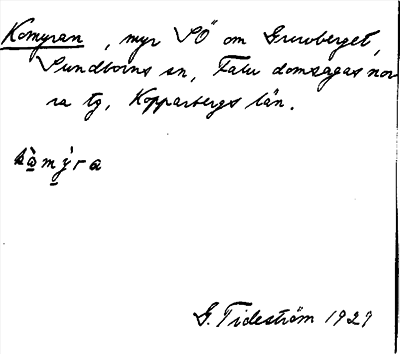 Komyran, myr SÖ om Gruvberget,
Sundborns sn, Falu domsagas nor
ra tg, Kopparbergs län.
kò̠mý̠ra
G. Tideström 1929